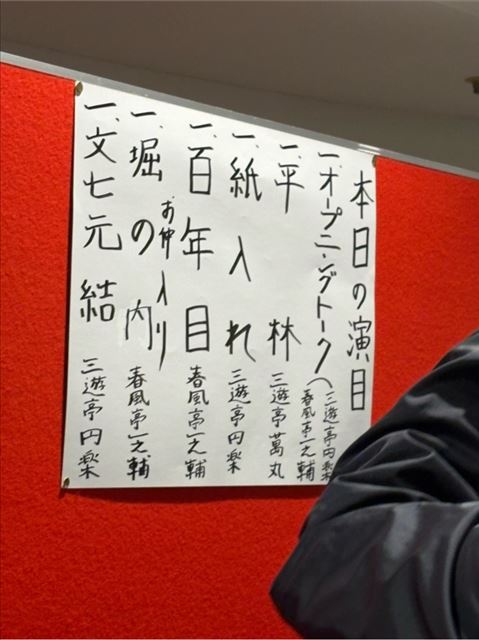 本日の演目
一、オープニングトーク(三遊亭円楽 春風亭一之輔
一、平林 三遊亭萬丸
一、紙入れ 三遊亭円楽
一、百年目 春風亭一之輔
お仲入り
一、堀の内 春風亭一之輔
一、文七元結 三遊亭円楽